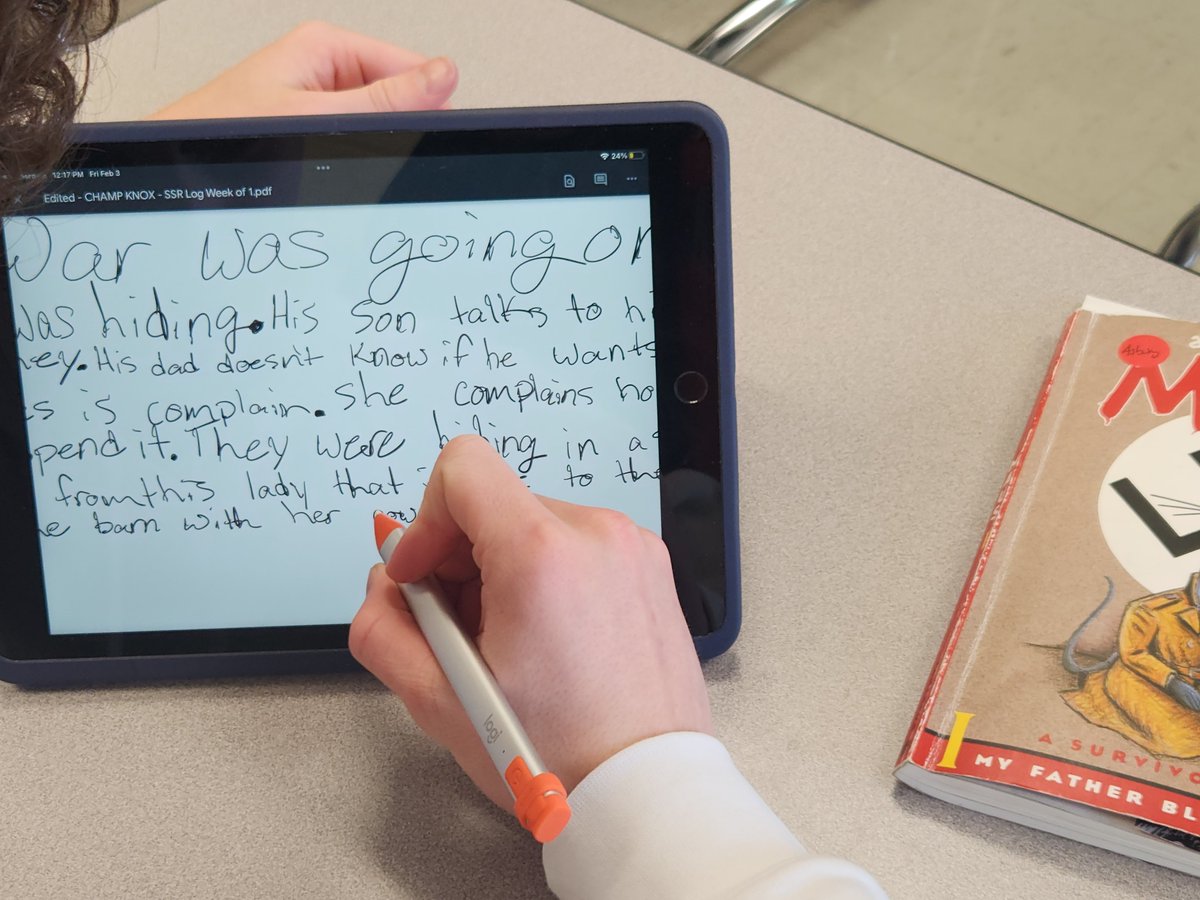 12:17 PM Fri Feb 3
24%
Edited - CHAMP KNOX - SSR Log Week of 1.pdf
War was going on
was hiding. His son talks to hi
ey. His dad doesn't know if he wants
s is complain. she complains ho
pend it. They were hiding in a
from this lady that to the
e barn with her cow
logi
Asbury
M
A SURVIVO
I
MY FATHER BL